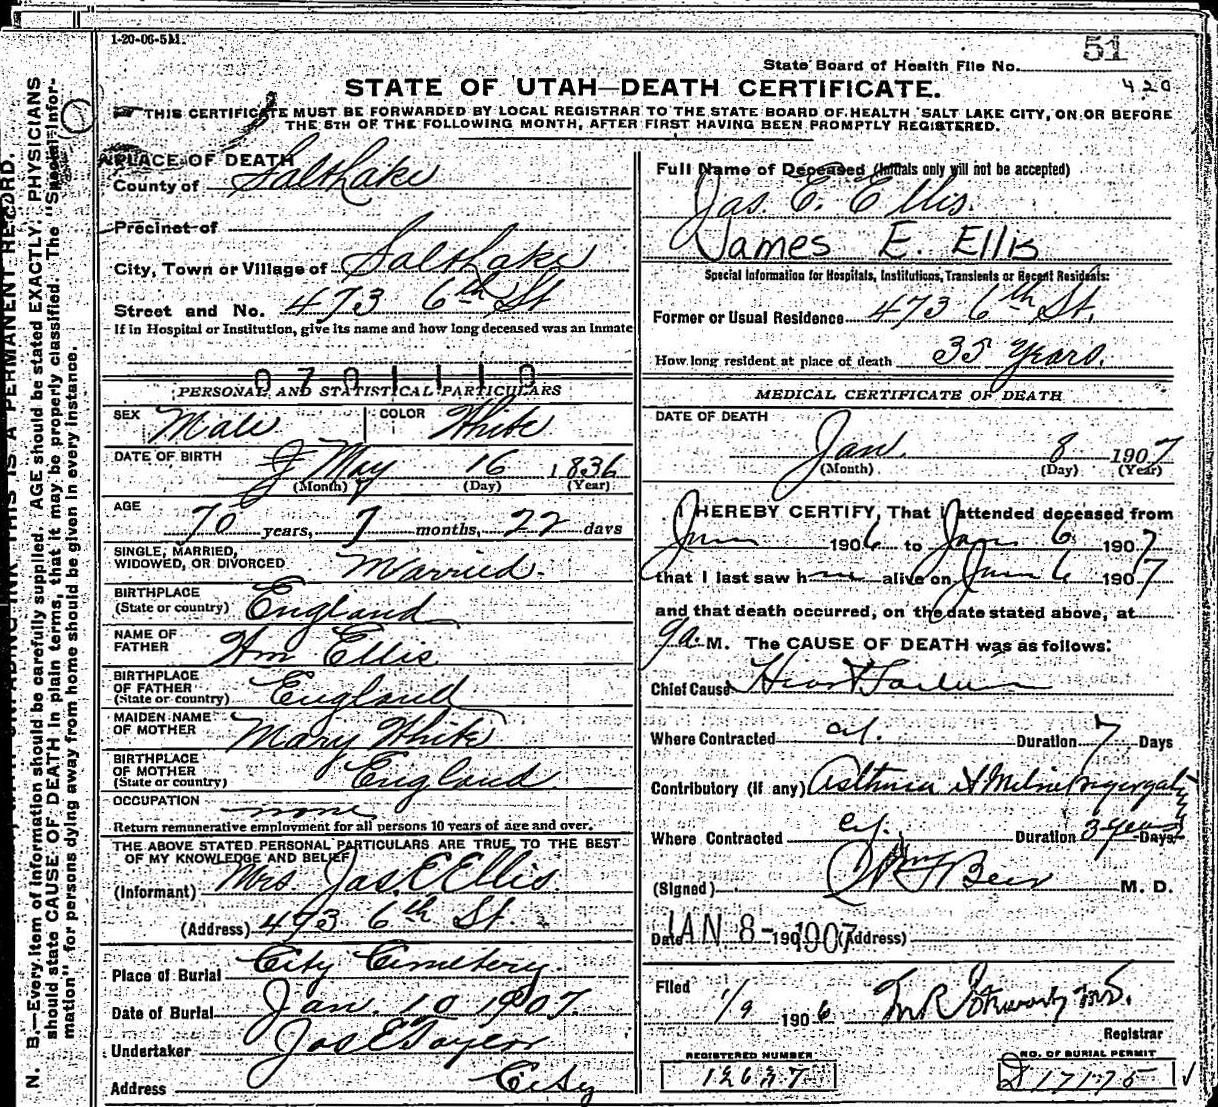 1-20-06-5M.
51
State Board of Health File No.
420
STATE OF UTAH—DEATH CERTIFICATE.
THIS CERTIFICATE MUST BE FORWARDED BY LOCAL REGISTRAR TO THE STATE BOARD OF HEALTH SALT LAKE CITY, ON OR BEFORE
THE 5TH OF THE FOLLOWING MONTH, AFTER FIRST HAVING BEEN PROMPTLY REGISTERED.
N. B.—Every item of information should be carefully supplied. AGE should be stated EXACTLY. PHYSICIANS
should state CAUSE OF DEATH in plain terms, that it may be properly classified. The "Special Infor-
mation" for persons dying away from home should be given in every instance.
THIS IS A PERMANENT RECORD.
PLACE OF DEATH
County of Salt Lake
Precinct of
City, Town or Village of Salt Lake
Street and No. 473 6th St
If in Hospital or Institution, give its name and how long deceased was an inmate
0701110
PERSONAL AND STATISTICAL PARTICULARS
SEX Male COLOR White
DATE OF BIRTH May 16 1836
(Month) (Day) (Year)
AGE 70 years, 7 months, 22 days
SINGLE, MARRIED,
WIDOWED, OR DIVORCED Married.
BIRTHPLACE
(State or country) England
NAME OF
FATHER Wm Ellis
BIRTHPLACE
OF FATHER
(State or country) England
MAIDEN NAME
OF MOTHER Mary White
BIRTHPLACE
OF MOTHER
(State or country) England.
OCCUPATION none
Return remunerative employment for all persons 10 years of age and over.
THE ABOVE STATED PERSONAL PARTICULARS ARE TRUE TO THE BEST
OF MY KNOWLEDGE AND BELIEF
(Informant) Mrs Jas. E Ellis.
(Address) 473 6th St.
Place of Burial City Cemetery.
Date of Burial Jan. 10 1907.
Undertaker Jas E Taylor
Address City
Full Name of Deceased (Initials only will not be accepted)
Jas. E. Ellis.
James E. Ellis
Special Information for Hospitals, Institutions, Transients or Recent Residents:
Former or Usual Residence 473 6th St.
How long resident at place of death 35 Years.
MEDICAL CERTIFICATE OF DEATH
DATE OF DEATH
Jan. 8 1907
(Month) (Day) (Year)
I HEREBY CERTIFY, That I attended deceased from
1906 to Jan 6 1907
that I last saw h alive on Jan 6 1907
and that death occurred, on the date stated above, at
9 a. M. The CAUSE OF DEATH was as follows:
Chief Cause Heart Failure
Where Contracted Duration 7 Days
Contributory (if any) Asthma &
Where Contracted Duration 3 years Days
(Signed) M. D.
Date JAN 8- 190 1907 (Address)
Filed 1/9 1906
Registrar
REGISTERED NUMBER
12637
NO. OF BURIAL PERMIT
D 17175